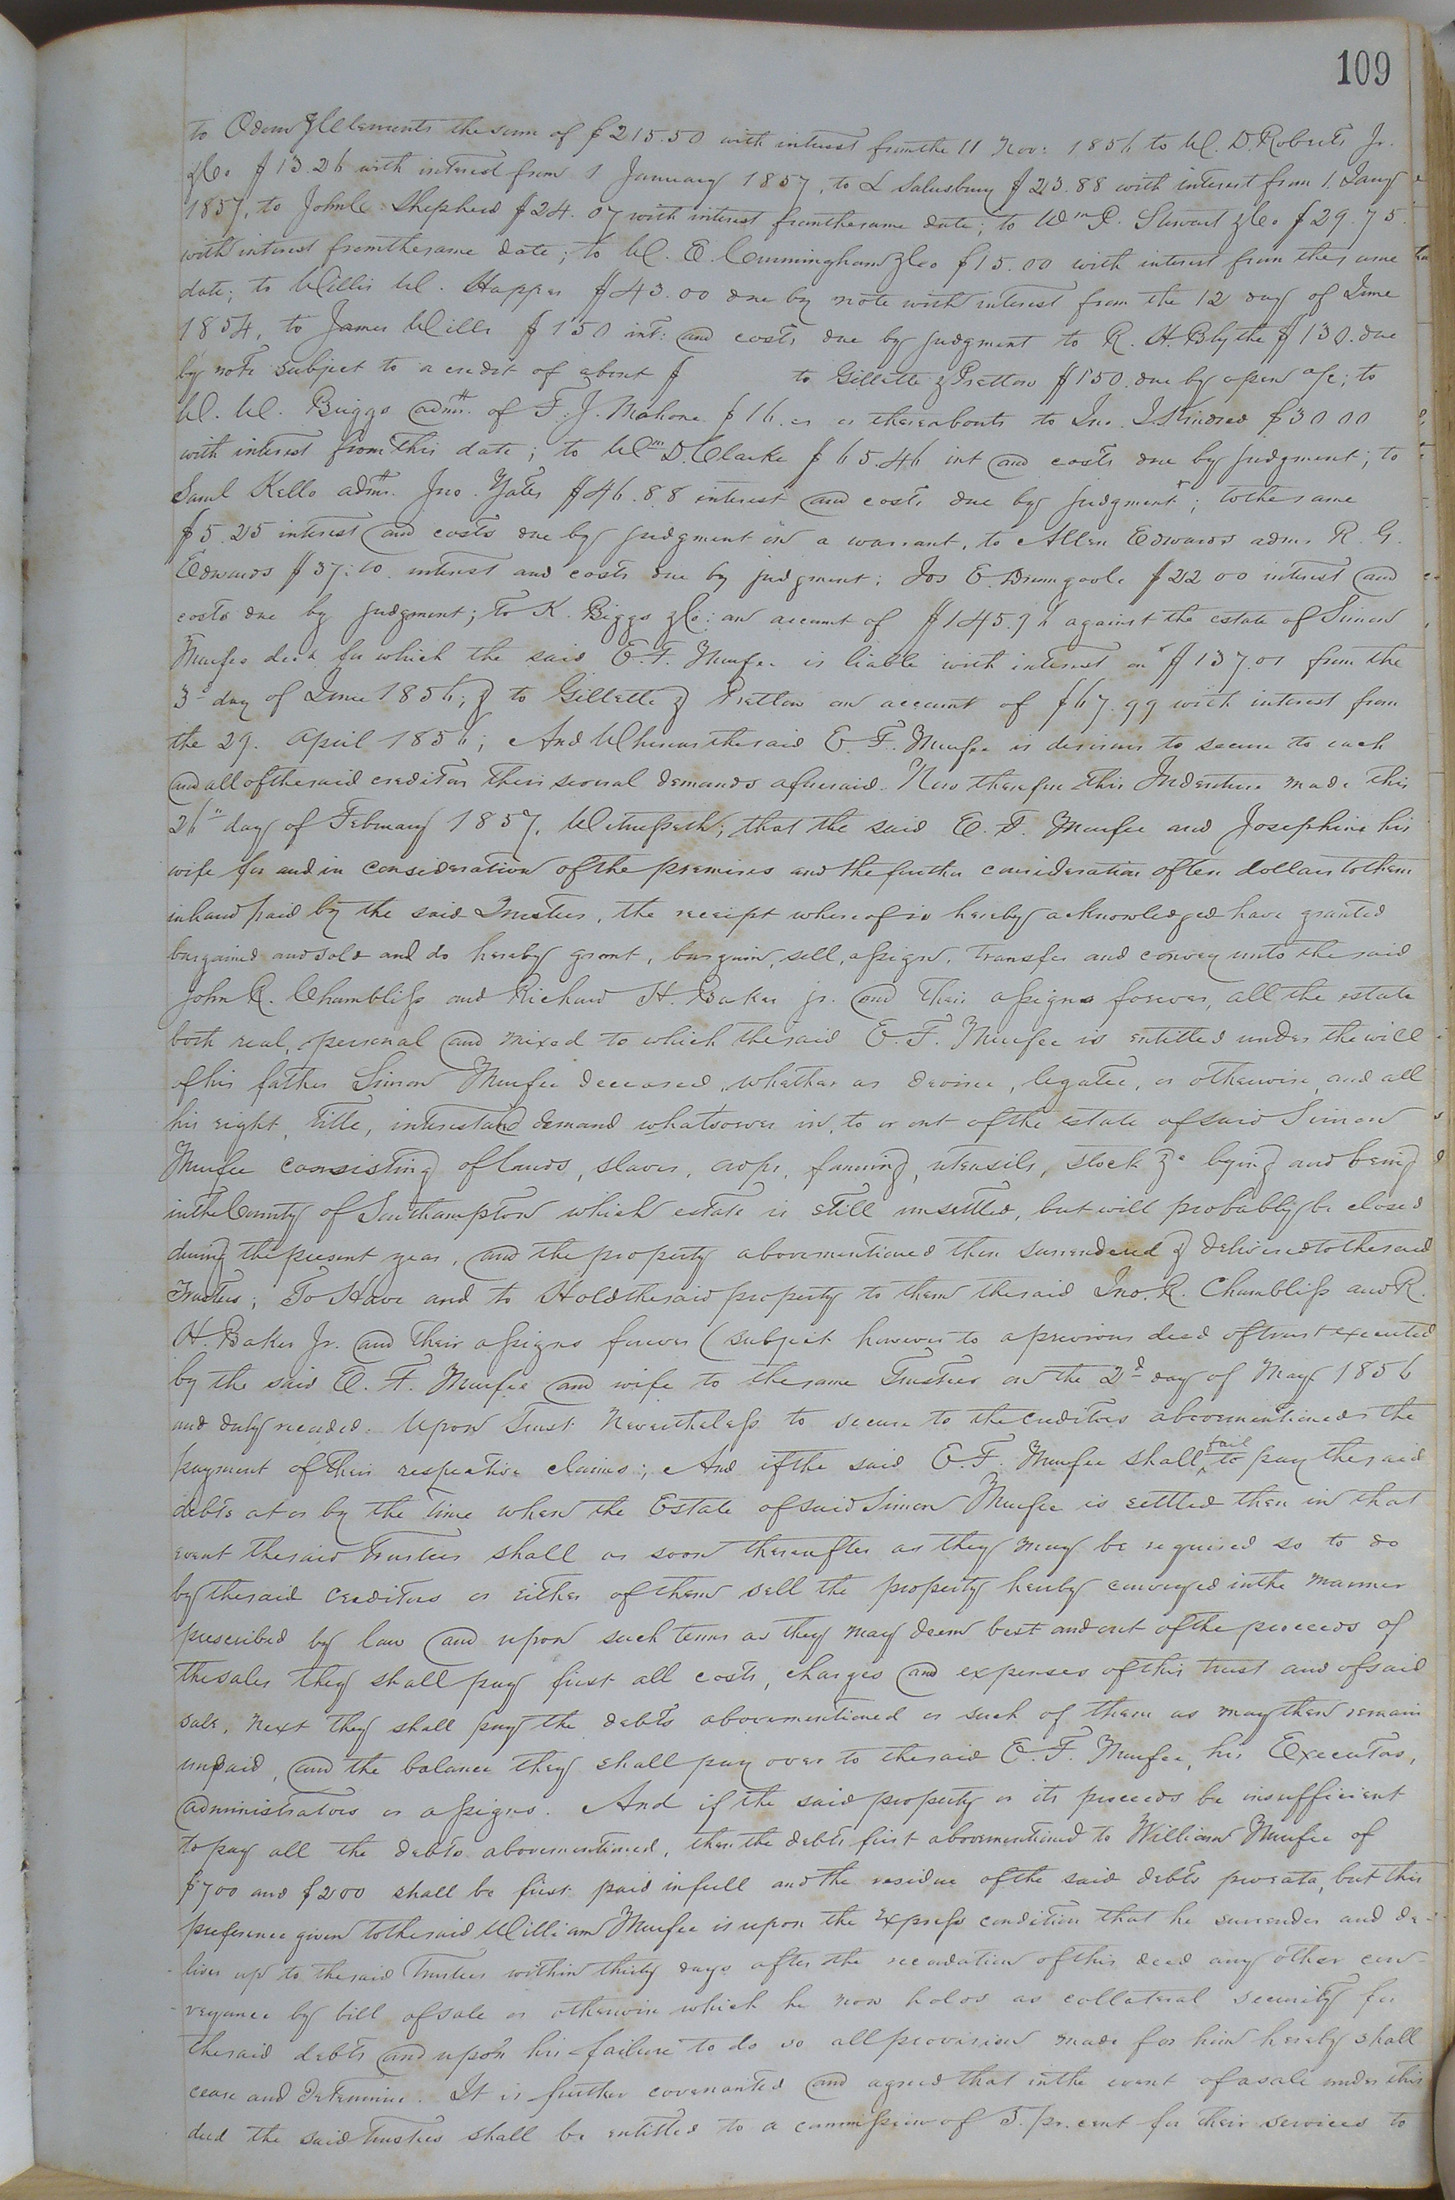 109
to Odom & Clements the sum of $215.50 with interest from the 11 Nov: 1856 to W. D. Roberts Jr.
& Co $13.26 with interest from 1 January 1857, to L Salusbury $23.88 with interest from 1. Jany
1857, to John C. Shepherd $24.07 with interest from the same date; to Wm P. Stewart & Co $29.75
with interest from the same date; to W. E. Cunningham & Co $15.00 with interest from the same
date; to Willis W. Happer $43.00 due by note with interest from the 12 day of June
1854, to James Wills $150 int: and costs due by judgment to R. H. Blythe $130. due
by note subject to a credit of about $ to Gillette & Pretlow $150. due by open a/c; to
W. W. Briggs admr. of T. J. Mahone $16. or thereabouts to Jno. J. Kindred $30 00
with interest from this date; to Wm D. Clarke $65.46 int and costs due by judgment; to
Saml Kello admr. Jno. Yates $46.88 interest and costs due by judgment; to the same
$5.25 interest and costs due by judgment on a warrant, to Allen Edwards admr R. G.
Edwards $37:10. interest and costs due by judgment; Jos E. Drumgoole $22 00 interest and
costs due by judgment; to K. Biggs & Co: an account of $145.76 against the estate of Simon
Murfee decd. for which the said E. F. Murfee is liable with interest on $137.01 from the
3d day of June 1856; & to Gillette & Pretlow an account of $67.99 with interest from
the 29. April 1856; And Whereas the said E. F. Murfee is desirous to secure to each
and all of the said creditors their several demands aforesaid. Now therefore this Indenture made this
26th day of February 1857, Witnesseth; that the said E. F. Murfee and Josephine his
wife for and in consideration of the premises and the further consideration of ten dollars to them
in hand paid by the said Trustees, the receipt whereof is hereby acknowledged have granted
bargained and sold and do hereby grant, bargain, sell, assign, transfer and convey unto the said
John R. Chambliss and Richard H. Baker jr. and their assigns forever, all the estate
both real, personal and mixed to which the said E. F. Murfee is entitled under the will
of his father Simon Murfee deceased, whether as devisee, legatee, or otherwise, and all
his right, title, interest and demand whatsoever in, to or out of the estate of said Simon
Murfee consisting of lands, slaves, crops, farming, utensils, stock &c lying and being
in the County of Southampton which estate is still unsettled, but will probably be closed
during the present year, and the property abovementioned then surrendered & delivered to the said
Trustees; To Have and to Hold the said property to them the said Jno. R. Chambliss and R.
H. Baker Jr. and their assigns forever (subject however to a previous deed of trust executed
by the said E. F. Murfee and wife to the same Trustees on the 2d day of May 1856
and duly recorded. Upon Trust Nevertheless to secure to the creditors abovementioned the
payment of their respective claims; And if the said E. F. Murfee shall fail to pay the said
debts at or by the time when the Estate of said Simon Murfee is settled then in that
event the said Trustees shall as soon thereafter as they may be required so to do
by the said creditors or either of them sell the property hereby conveyed in the manner
prescribed by law and upon such terms as they may deem best and out of the proceeds of
the sales they shall pay first all costs, charges and expenses of this trust and of said
sale, next they shall pay the debts abovementioned or such of them as may then remain
unpaid, and the balance they shall pay over to the said E. F. Murfee, his Executors,
administrators or assigns. And if the said property or its proceeds be insufficient
to pay all the debts abovementioned, then the debts first abovementioned to William Murfee of
$700 and $200 shall be first paid in full and the residue of the said debts pro rata, but this
preference given to the said William Murfee is upon the express condition that he surrender and de-
liver up to the said Trustees within thirty days after the recordation of this deed any other con-
veyance by bill of sale or otherwise which he now holds as collateral security for
the said debts and upon his failure to do so all provision made for him hereby shall
cease and determine. It is further covenanted and agreed that in the event of a sale under this
deed the said Trustees shall be entitled to a commission of 5. pr. cent for their services to